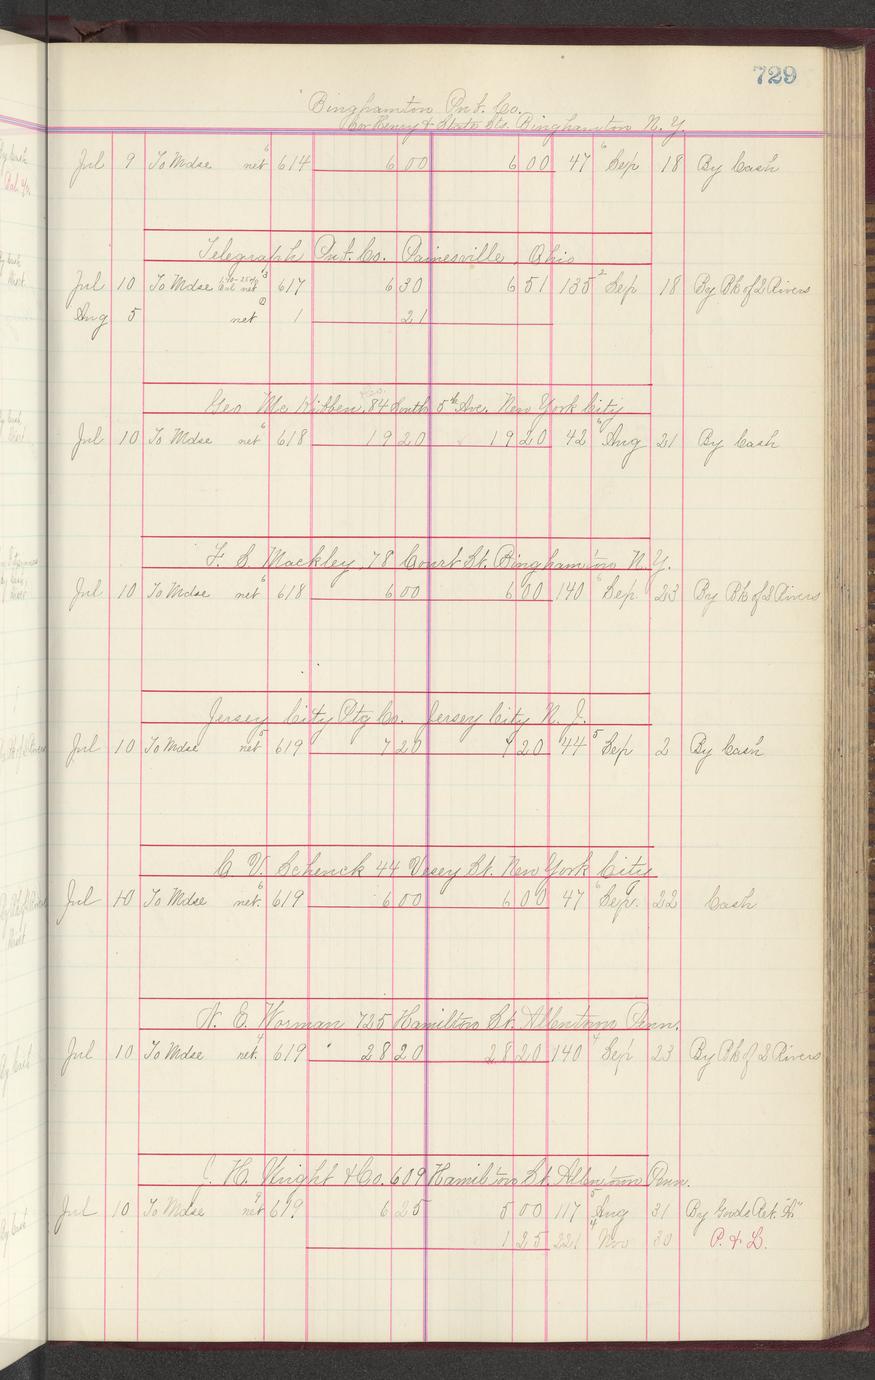 729
Binghamton Pnt. Co.
Cor Henry & State Sts. Binghamton N. Y.
Jul 9 To Mdse net 6 614 6 00 6 00 47 6 Sep 18 By Cash
Telegraph Pnt. Co. Painesville, Ohio
Jul 10 To Mdse net 3 617 6 30 6 51 135 2 Sep 18 By Bk of 2 Rivers
Aug 5 net 1 21
Geo Mc Kibben, 84 South 5th Ave. New York City
Jul 10 To Mdse net 6 618 19 20 19 20 42 6 Aug 21 By Cash
F. S. Mackley, 78 Court St. Binghamton N. Y.
Jul 10 To Mdse net 6 618 6 00 6 00 140 6 Sep 23 By Bk of 2 Rivers
Jersey City Ptg Co. Jersey City N. J.
Jul 10 To Mdse net 5 619 7 20 7 20 44 5 Sep 2 By Cash
C. V. Schenck 44 Vesey St. New York City
Jul 10 To Mdse net. 6 619 6 00 6 00 47 6 Sep. 22 Cash
N. E. Worman 725 Hamilton St. Allentown Penn.
Jul 10 To Mdse net. 4 619 28 20 28 20 140 4 Sep 23 By Bk of 2 Rivers
J. H. Wright & Co. 609 Hamilton St. Allentown Penn.
Jul 10 To Mdse net 9 619 6 25 5 00 117 5 Aug 31 By Goods Ret. "A"
1 25 221 4 Nov 30 P. & L.